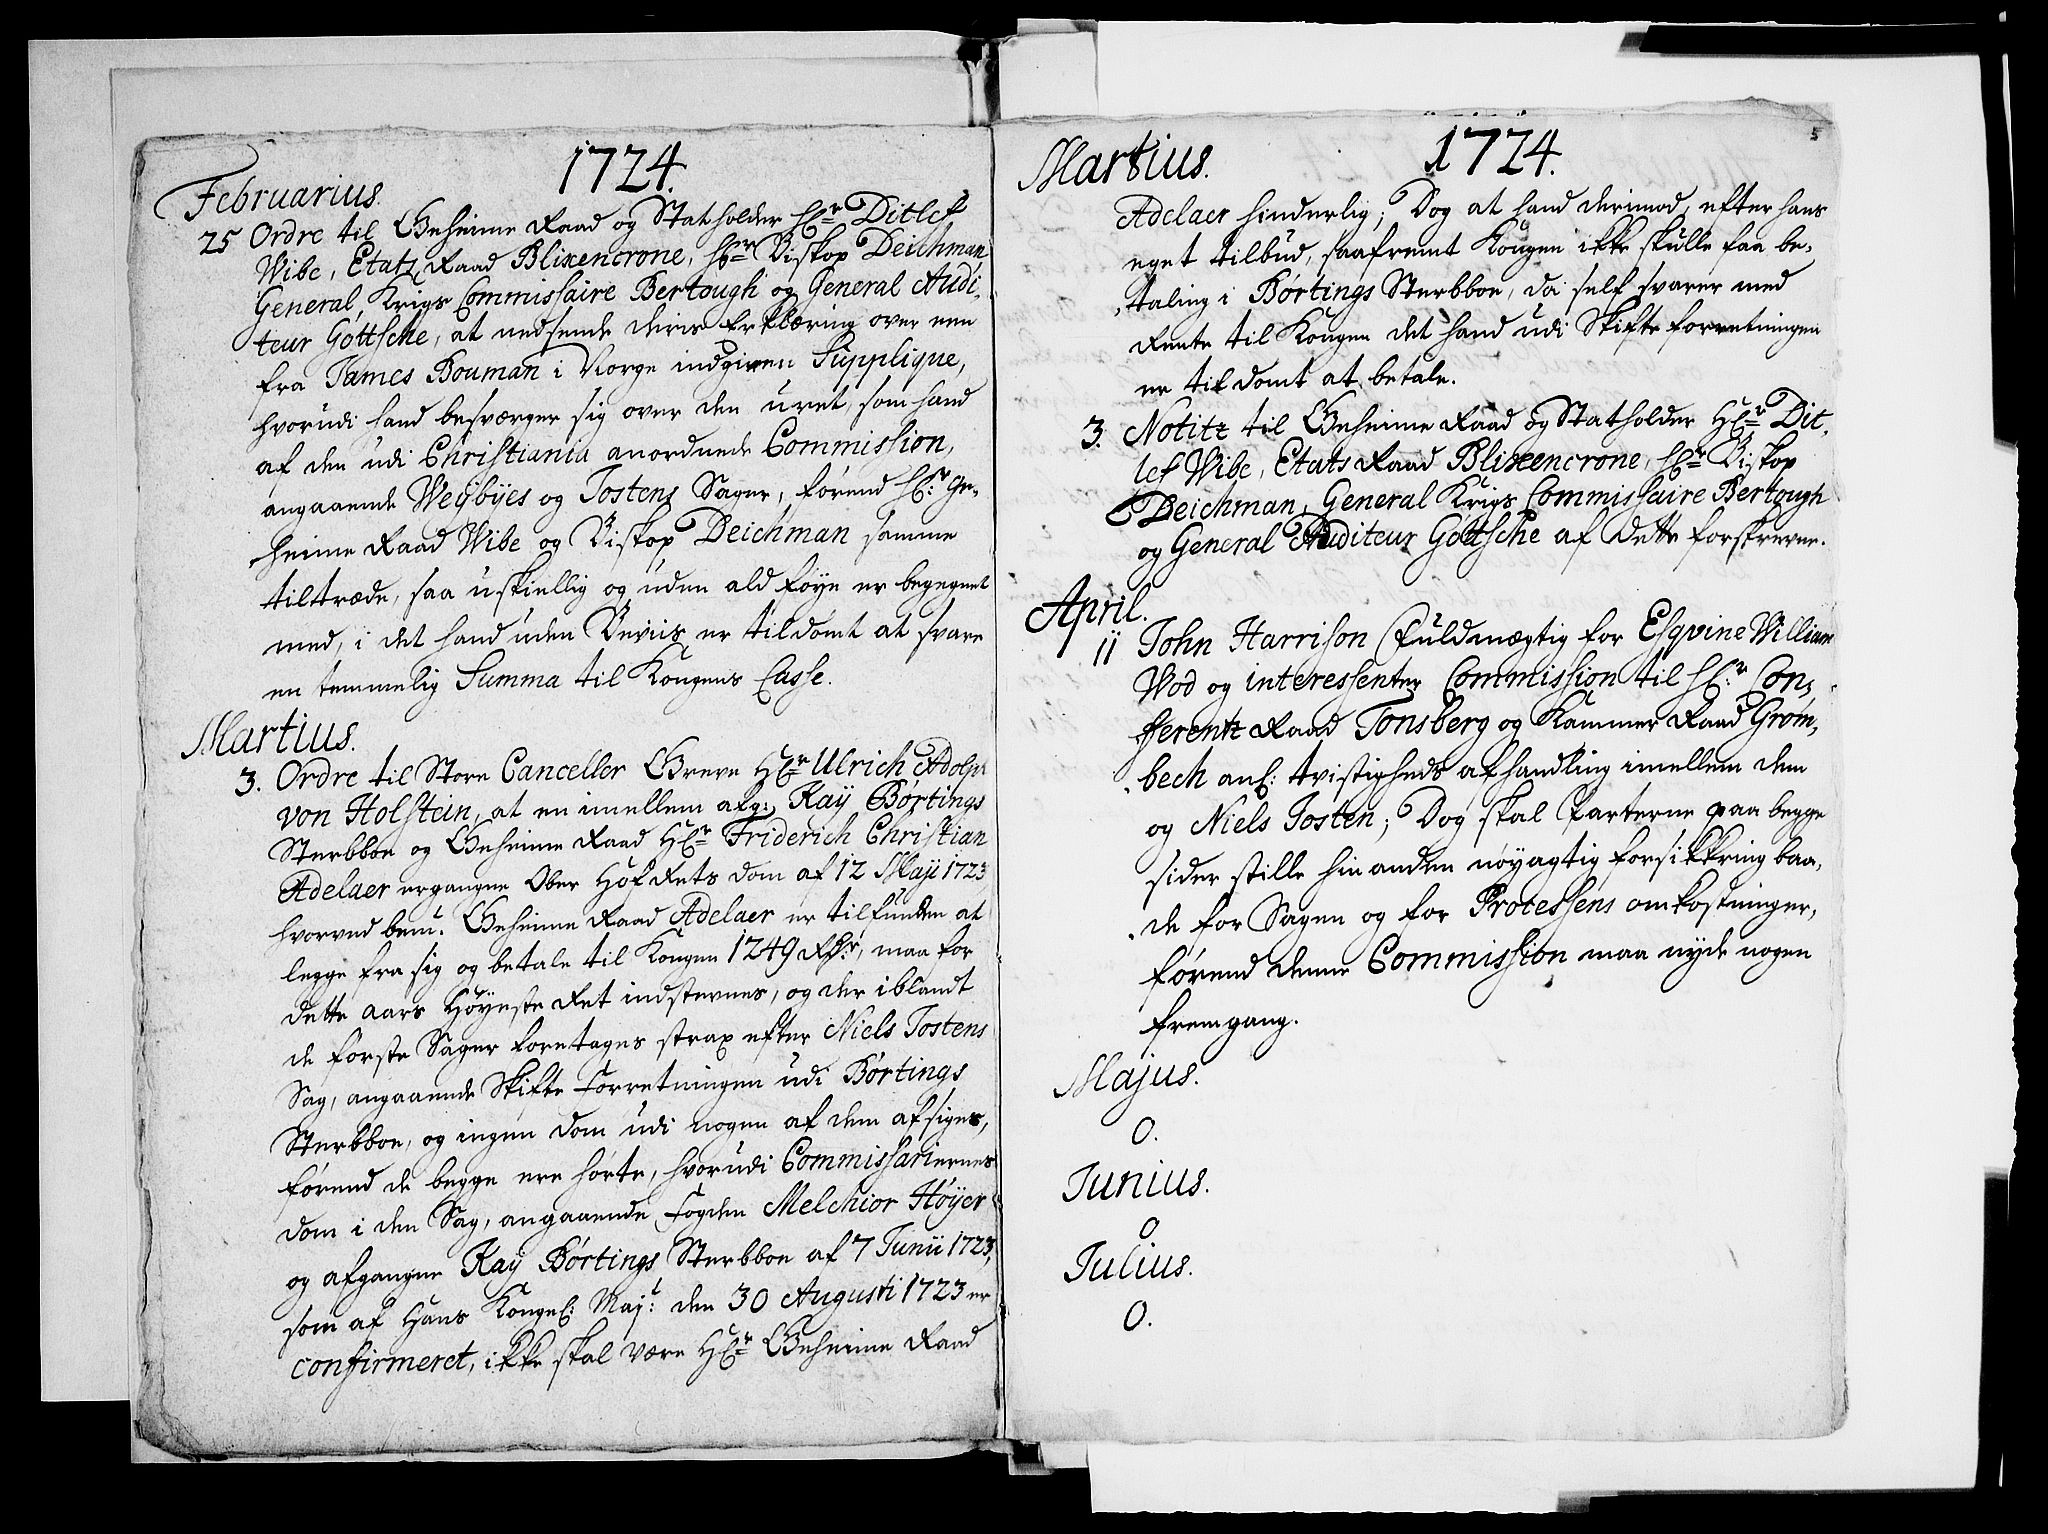 1724.
Februarius.
25 Ordre til Geheime Raad og Statholder Hr Ditlef
Wibe, Etatz Raad Blixencrone, Hr Biskop Deichman
General, Krigs Commissaire Bertough og General Audi,
teur Gottsche, at nedsende deris Erklæring over een
fra James Bouman i Norge indgiven Supplique,
hvorudi hand besværger sig over den uret, som hand
af den udi Christiania anordnede Commission,
angaaende Weÿbÿes og Tostens Sager, förend H:r Ge,
heime Raad Wibe og Biskop Deichman samme
tiltræde, saa uskiellig og uden ald föye er begegnet
med, i det hand uden Beviis er tildömt at svare
en temmelig Summa til Kongens Casse.
Martius.
3. Ordre til Store Canceller Greve Hr Ulrich Adolph
von Holstein, at en imellem afg: Kaÿ Börtings
Sterbboe og Geheime Raad Hr Friderich Christian
Adelaer ergangne Ober Hof Rets dom af 12 Maji 1723
hvorved bem: Geheime Raad Adelaer er tilfunden at
legge fra sig og betale til Kongen 1249 Rdr, maa for
dette aars Höÿeste Ret indstevnes, og der iblandt
de förste Sager foretages strax efter Niels Tostens
Sag, angaaende Skifte Forretningen udi Börtings
Sterbboe, og ingen dom udi nogen af dem afsiges,
förend de begge ere hörte, hvorudi Commissariernes
dom i den Sag, angaaende Fogden Melchior Höÿer
og afgangne Kaÿ Börtings Sterbboe af 7 Junii 1723,
som af Hans Kongel: Maj:t den 30 Augusti 1723 er
confirmeret, ikke skal være Hr Geheime Raad
5
1724.
Martius.
Adelaer hinderlig; Dog at hand derimod, efter hans
eget tilbud, saafremt Kongen ikke skulle faa be,
taling i Börtings Sterbboe, da self svarer med
Rente til Kongen det hand udi Skifte forretningen
er tildömt at betale.
3. Notitz til Geheime Raad og Statholder Hr Dit,
lef Wibe, Etats Raad Blixencrone, Hr Biskop
Deichman, General Krigs Commissaire Bertough
og General Auditeur Gottsche af dette forskrevne.
April.
11 John Harrison Fuldmægtig for Esqvine William
Wod og interessenter Commission til H:r Con,
ferentz Raad Tonsberg og Kammer Raad Gröm,
bech anl: tvistigheds afhandling imellem dem
og Niels Tosten; Dog skal Parterne paa begge
sider stille hinanden nöyagtig forsikkring baa,
de for Sagen og for Processens omkostninger,
förend denne Commission maa nyde nogen
fremgang.
Majus.
0.
Junius.
0
Julius.
0.